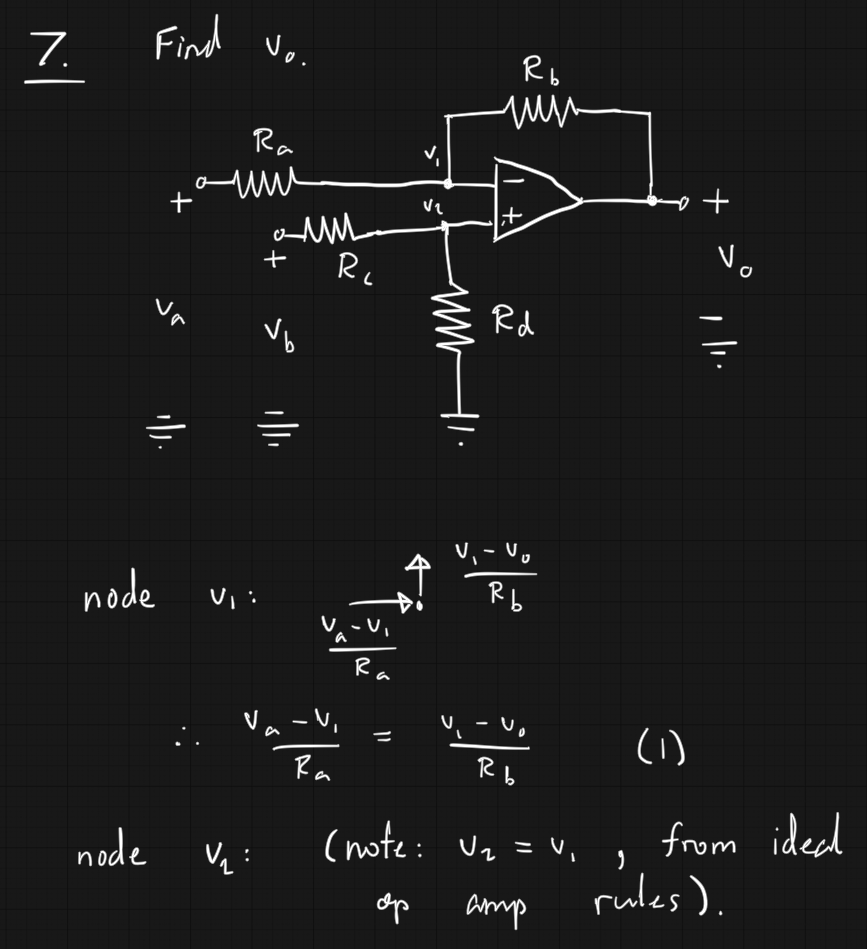 7. Find v₀.
R_b
R_a
v₁
−
+
v₂
+
+
+
R_c
v₀
v_a
R_d
v_b
−
node v₁: (v₁ − v₀)/R_b
(v_a − v₁)/R_a
∴ (v_a − v₁)/R_a = (v₁ − v₀)/R_b (1)
node v₂: (note: v₂ = v₁, from ideal
op amp rules).